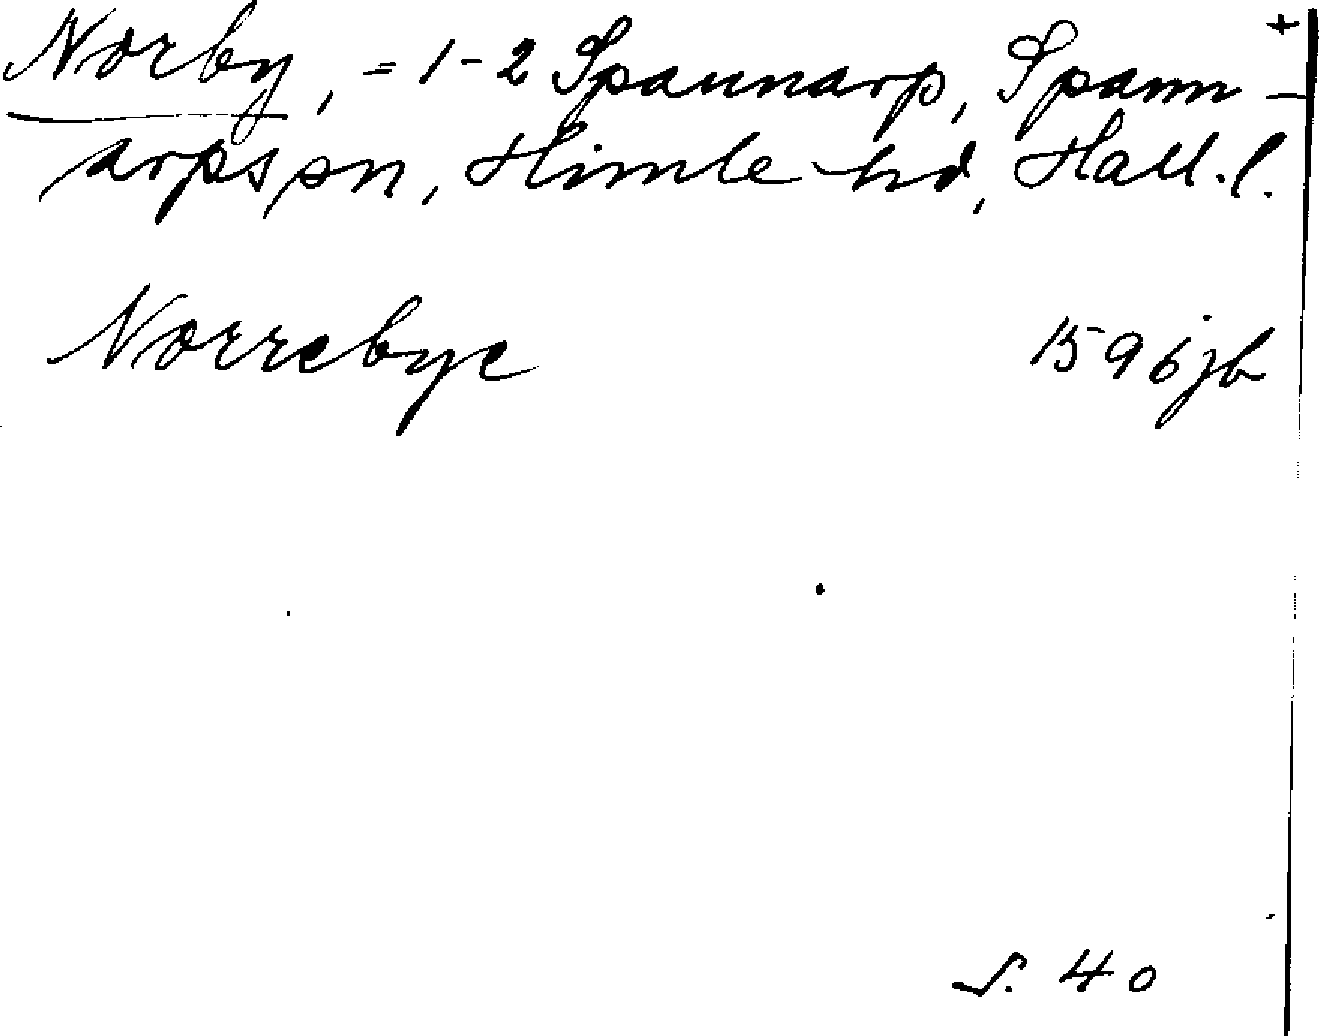 +
Norby, = 1-2 Spannarp, Spann-
arps sn, Himle hd, Hall. l.
Norrebye 1596 jb
S. 40